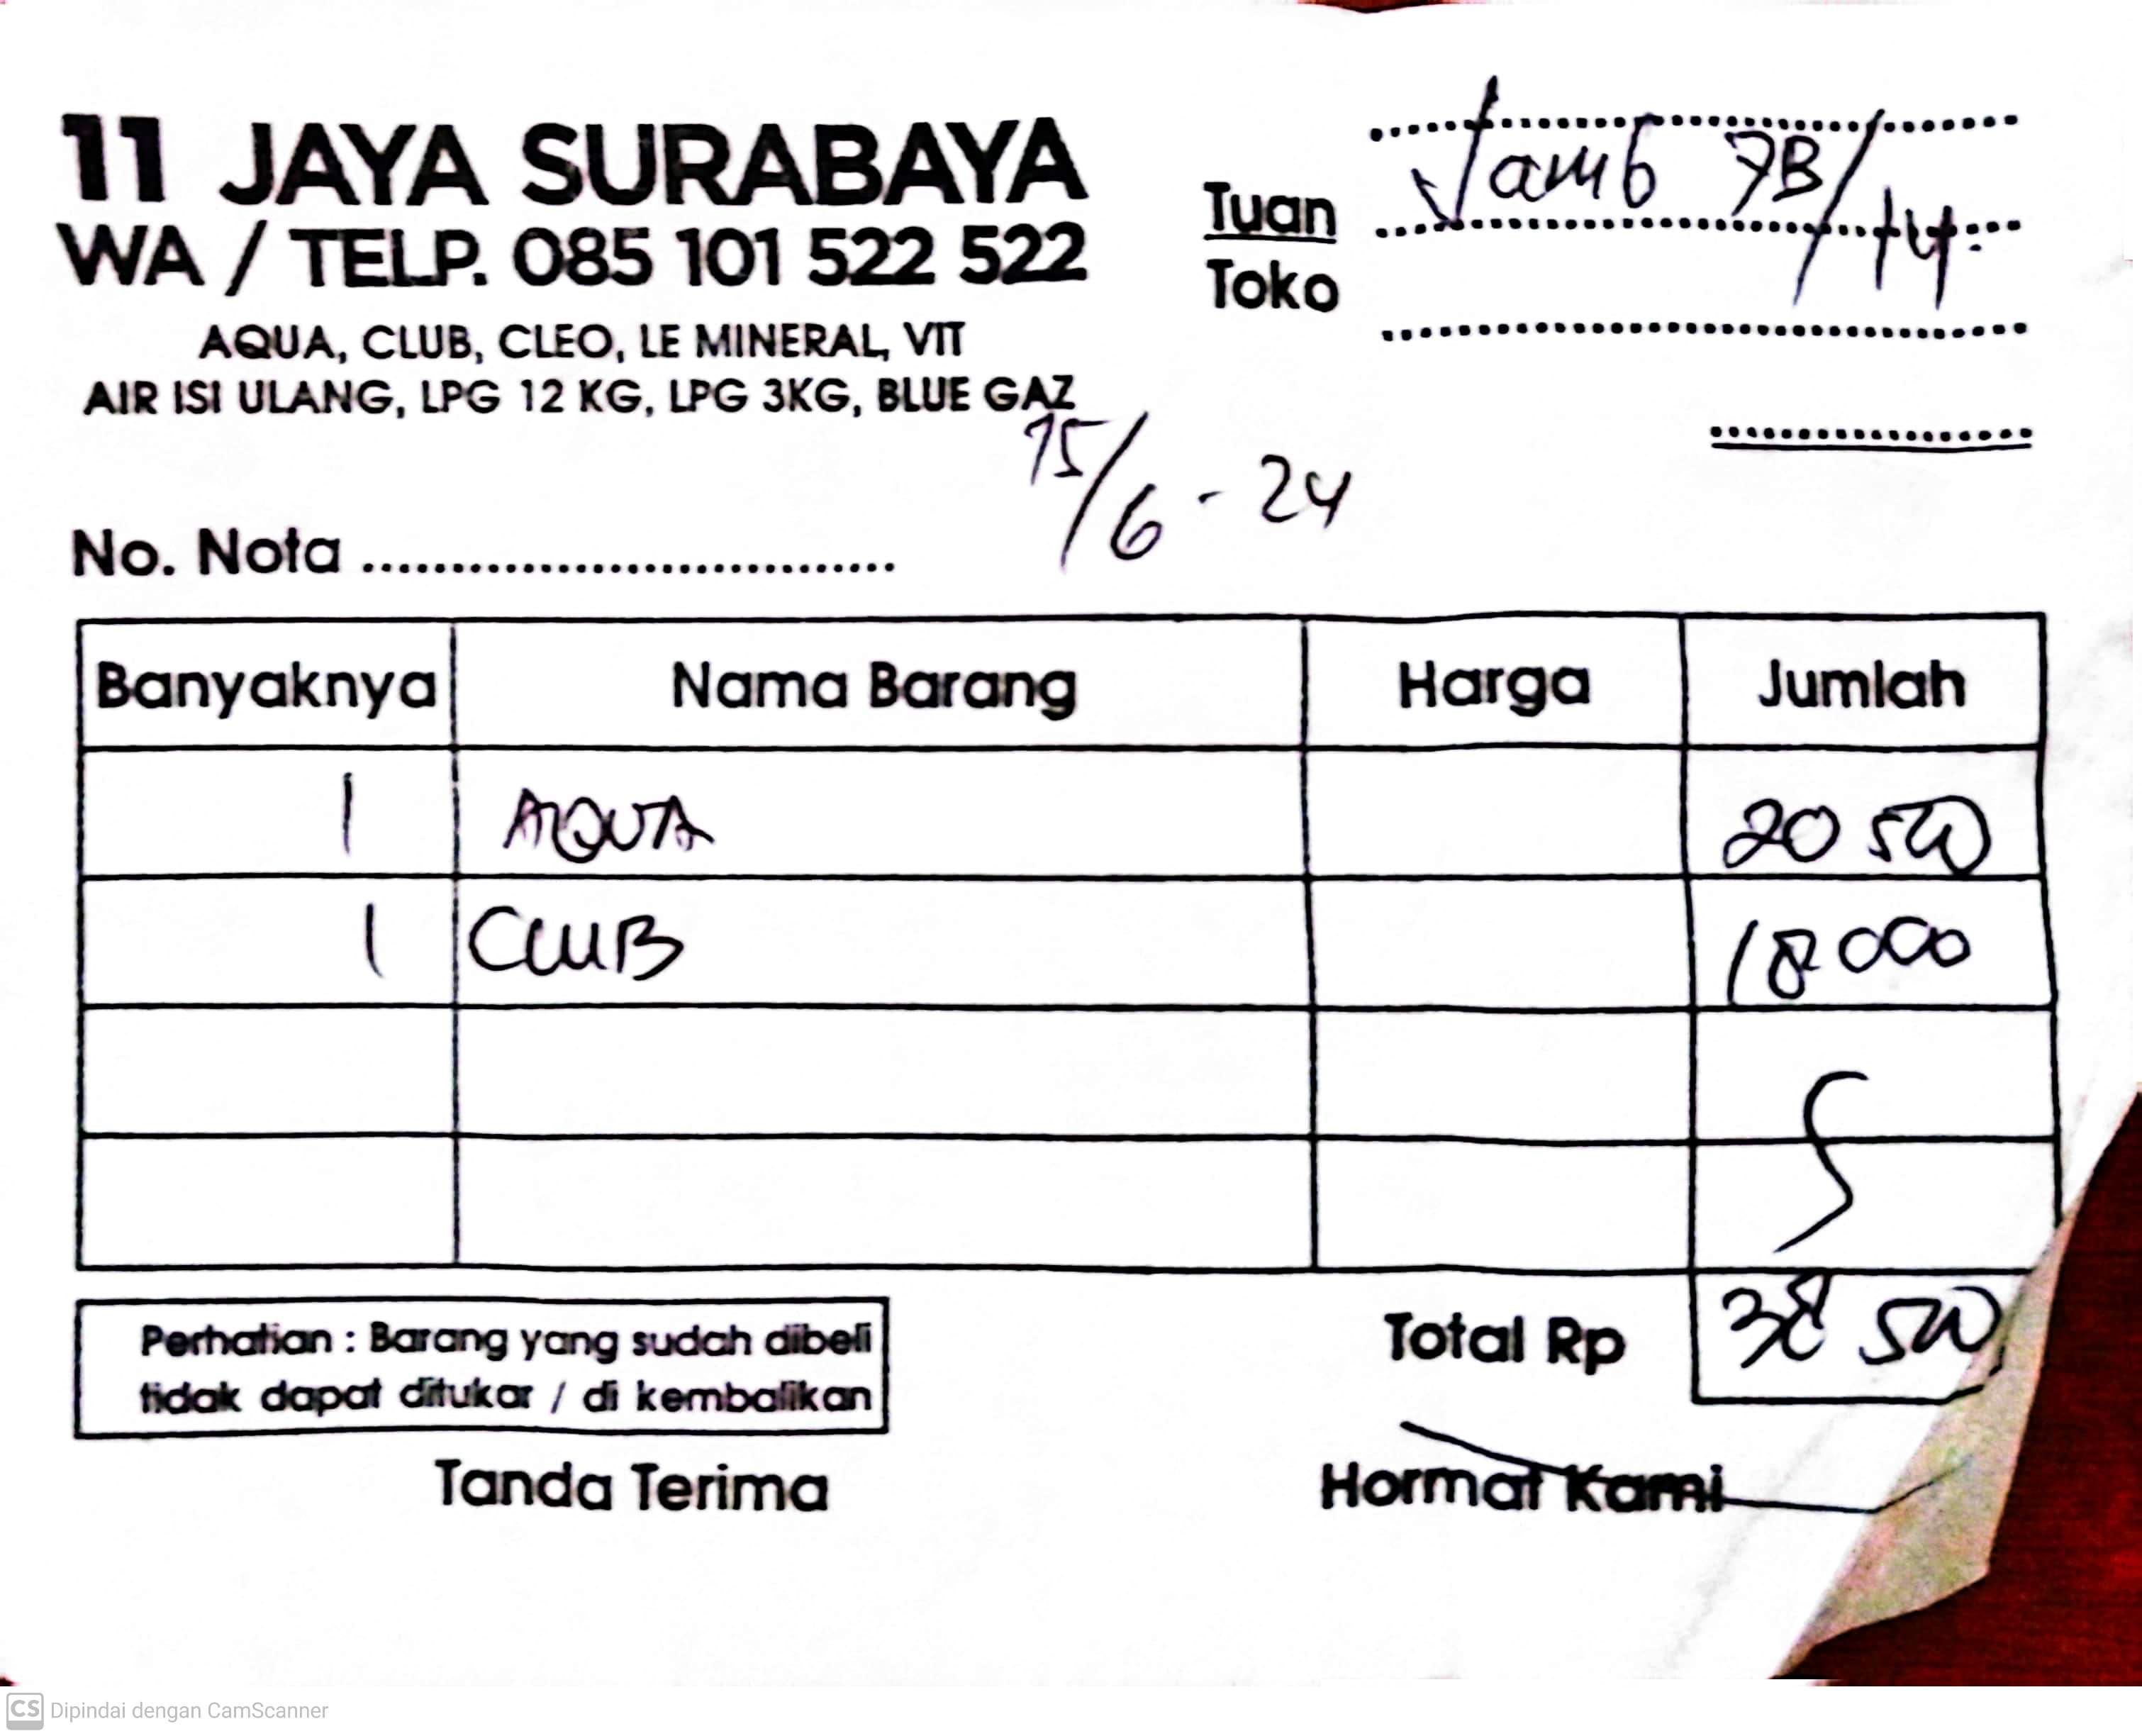 11 JAYA SURABAYA
WA / TELP. 085 101 522 522
AQUA, CLUB, CLEO, LE MINERAL, VIT
AIR ISI ULANG, LPG 12 KG, LPG 3KG, BLUE GAZ
Tuan
Toko
Jamb 7B/14.
15/6 - 24
No. Nota
Banyaknya Nama Barang Harga Jumlah
1 AQUA 20 500
1 CLUB 18 000
Total Rp 38 500
Perhatian : Barang yang sudah dibeli
tidak dapat ditukar / di kembalikan
Tanda Terima Hormat Kami
CS Dipindai dengan CamScanner